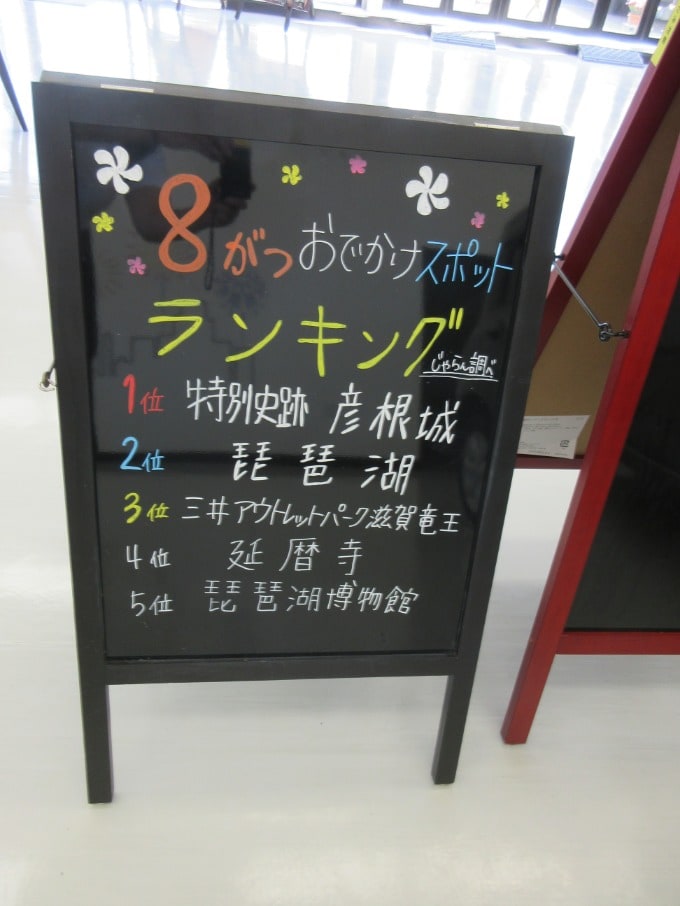 8がつおでかけスポット
ランキング
じゃらん調べ
1位 特別史跡 彦根城
2位 琵琶湖
3位 三井アウトレットパーク滋賀竜王
4位 延暦寺
5位 琵琶湖博物館